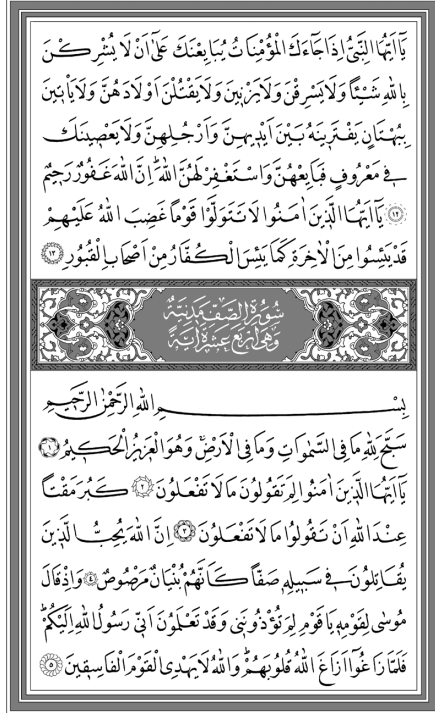 يَآ اَيُّهَا النَّبِيُّ اِذَا جَآءَكَ الْمُؤْمِنَاتُ يُبَايِعْنَكَ عَلٰٓى اَنْ لَا يُشْرِكْنَ
بِاللّٰهِ شَيْـًٔا وَلَا يَسْرِقْنَ وَلَا يَزْنٖينَ وَلَا يَقْتُلْنَ اَوْلَادَهُنَّ وَلَا يَأْتٖينَ
بِبُهْتَانٍ يَفْتَرٖينَهُ بَيْنَ اَيْدٖيهِنَّ وَاَرْجُلِهِنَّ وَلَا يَعْصٖينَكَ
فٖي مَعْرُوفٍ فَبَايِعْهُنَّ وَاسْتَغْفِرْ لَهُنَّ اللّٰهَۜ اِنَّ اللّٰهَ غَفُورٌ رَحٖيمٌ
﴿١٢﴾ يَآ اَيُّهَا الَّذٖينَ اٰمَنُوا لَا تَتَوَلَّوْا قَوْمًا غَضِبَ اللّٰهُ عَلَيْهِمْ
قَدْ يَئِسُوا مِنَ الْاٰخِرَةِ كَمَا يَئِسَ الْكُفَّارُ مِنْ اَصْحَابِ الْقُبُورِ ﴿١٣﴾
سُورَةُ الصَّفِّ مَدَنِيَّةٌ
وَهِيَ اَرْبَعَ عَشْرَةَ اٰيَةً
بِسْمِ اللّٰهِ الرَّحْمٰنِ الرَّحٖيمِ
سَبَّحَ لِلّٰهِ مَا فِي السَّمٰوَاتِ وَمَا فِي الْاَرْضِۚ وَهُوَ الْعَزٖيزُ الْحَكٖيمُ ﴿١﴾
يَآ اَيُّهَا الَّذٖينَ اٰمَنُوا لِمَ تَقُولُونَ مَا لَا تَفْعَلُونَ ﴿٢﴾ كَبُرَ مَقْتًا
عِنْدَ اللّٰهِ اَنْ تَقُولُوا مَا لَا تَفْعَلُونَ ﴿٣﴾ اِنَّ اللّٰهَ يُحِبُّ الَّذٖينَ
يُقَاتِلُونَ فٖي سَبٖيلِهٖ صَفًّا كَاَنَّهُمْ بُنْيَانٌ مَرْصُوصٌ ﴿٤﴾ وَاِذْ قَالَ
مُوسٰى لِقَوْمِهٖ يَا قَوْمِ لِمَ تُؤْذُونَنٖي وَقَدْ تَعْلَمُونَ اَنّٖي رَسُولُ اللّٰهِ اِلَيْكُمْۜ
فَلَمَّا زَاغُٓوا اَزَاغَ اللّٰهُ قُلُوبَهُمْۜ وَاللّٰهُ لَا يَهْدِي الْقَوْمَ الْفَاسِقٖينَ ﴿٥﴾